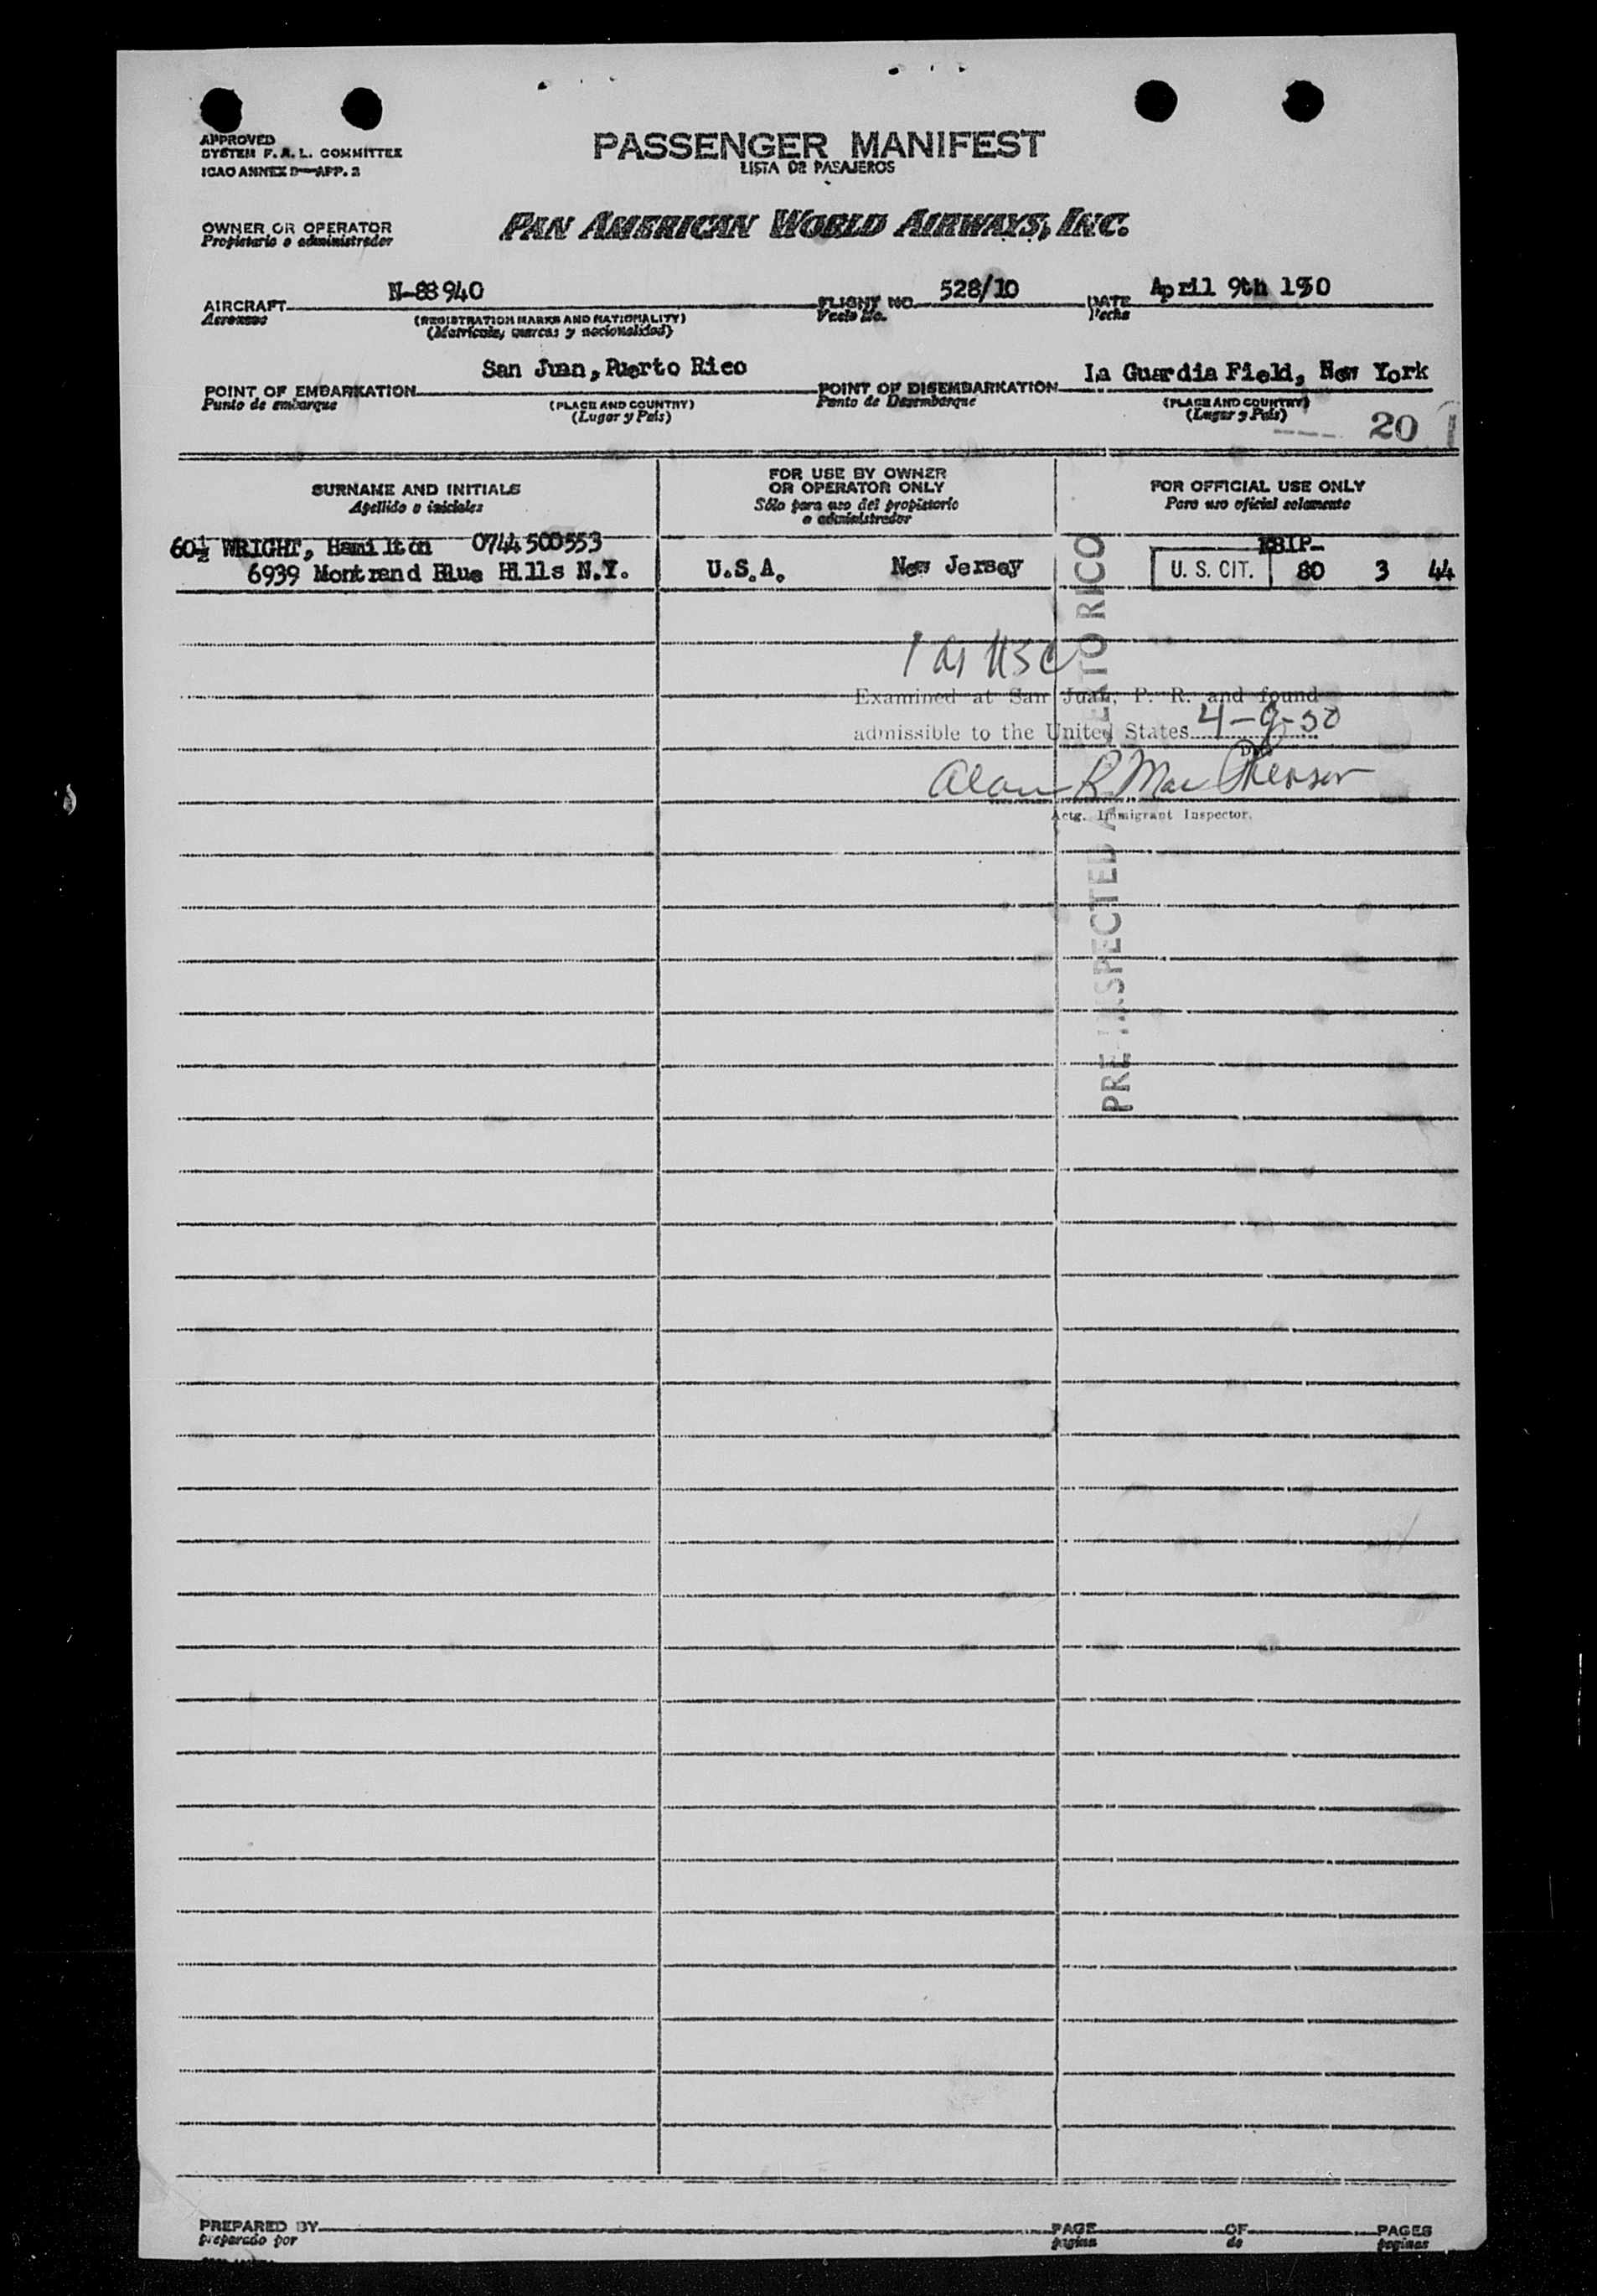 APPROVED
SYSTEM F.A.L. COMMITTEE
ICAO ANNEX 9—APP. 2
PASSENGER MANIFEST
LISTA DE PASAJEROS
OWNER OR OPERATOR
Propietario o administrador
PAN AMERICAN WORLD AIRWAYS, INC.
AIRCRAFT N-88940 FLIGHT NO. 528/10 DATE April 9th 1950
Aeronave (REGISTRATION MARKS AND NATIONALITY) Vuelo No. Fecha
(Matrícula, marcas y nacionalidad)
POINT OF EMBARKATION San Juan, Puerto Rico POINT OF DISEMBARKATION La Guardia Field, New York
Punto de embarque (PLACE AND COUNTRY) Punto de Desembarque (PLACE AND COUNTRY)
(Lugar y País) (Lugar y País)
20
SURNAME AND INITIALS FOR USE BY OWNER OR OPERATOR ONLY FOR OFFICIAL USE ONLY
Apellido e iniciales Sólo para uso del propietario o administrador Para uso oficial solamente
60½ WRIGHT, Hamilton 0744 500553
6939 Montrend Blue Hills N.Y. U.S.A. New Jersey U. S. CIT. 80 3 44
1 as USC
Examined at San Juan, P. R. and found
admissible to the United States 4-9-50
Date
Alan R MacPherson
Actg. Immigrant Inspector.
PRE-INSPECTED PUERTO RICO
PREPARED BY PAGE OF PAGES
preparado por página de páginas